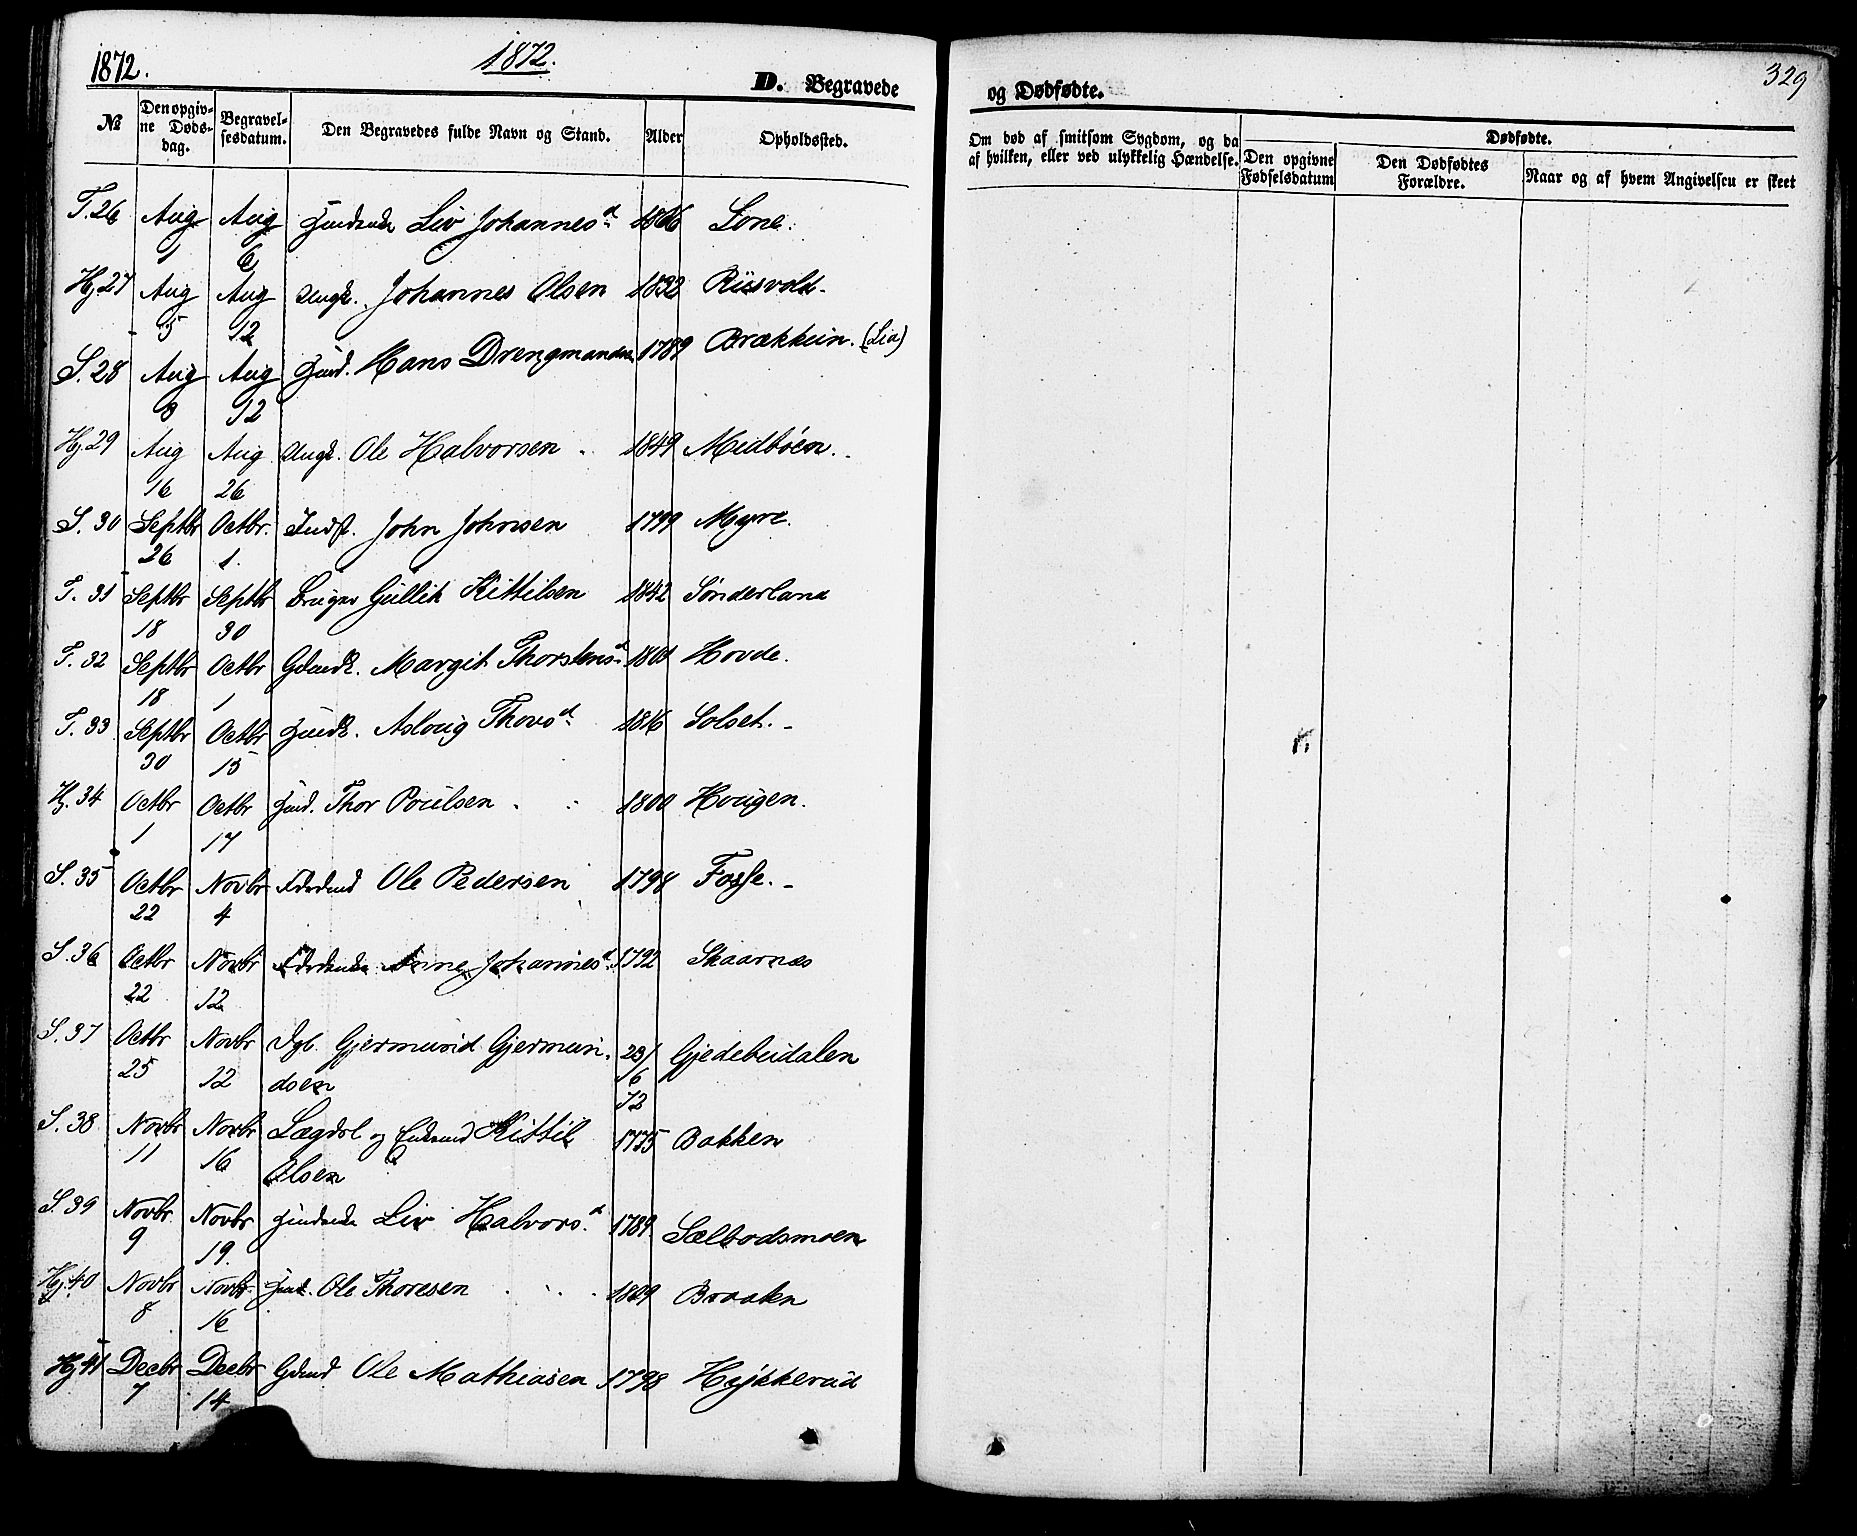 1872.
1872.
D. Begravede
og Dødfødte.
329
№
Den opgivne Dødsdag.
Begravelsesdatum.
Den Begravedes fulde Navn og Stand.
Alder
Opholdssted.
Om død af smitsom Sygdom, og da af hvilken, eller ved ulykkelig Hændelse.
Dødfødte.
Den opgivne Fødselsdatum
Den Dødfødtes Forældre.
Naar og af hvem Angivelsen er skeet
T. 26 Aug 1 Aug 6 Liv Johannesd. Lone.
Hj. 27 Aug 5 Aug 12 Ungk. Johannes Olsen 1832 Riisvold.
S. 28 Aug 8 Aug 12 Hans Drengmandsen 1789 Brækkein. (Lia)
Hj. 29 Aug 16 Aug 26 Ungk. Ole Halvorsen 1849 Midbøen.
S. 30 Septbr 26 Octbr. 1. Indst. John Johnsen 1799 Myre.
T. 31 Septbr 18 Septbr 30 Bruger Gullik Kittilsen 1842 Sønderland
T. 32 Septbr 18 Octbr 1 Margit Thorstensd. Hovde.
T. 33 Septbr 30 Octbr 15 Asloug Thovsd. 1816 Solset.
Hj. 34 Octbr 1 Octbr 17 Thor Poulsen 1800 Hougen.
S. 35 Octbr 22 Novbr 4 Ole Pedersen 1798 Fosse.
S. 36 Octbr 22 Novbr 12 Anne Johannesd. 1792 Skaarnæs
S. 37 Octbr 25 Novbr 12 Gjermund Gjermun- 23/6 72 Gjedebudalen
dsen
S. 38 Novbr 11 Novbr 16 Lægdsl og Enkemd Kittil 1775 Bakken
Olsen
S. 39 Novbr 9 Novbr 19. Liv Halvorsd. 1789 Sælbodsmoen
Hj. 40 Novbr 8 Novbr 16 Ole Thoresen 1809 Braakn
Hj. 41 Decbr 7 Decbr 14 Gdmd Ole Mathiasen 1798 Hykkerud